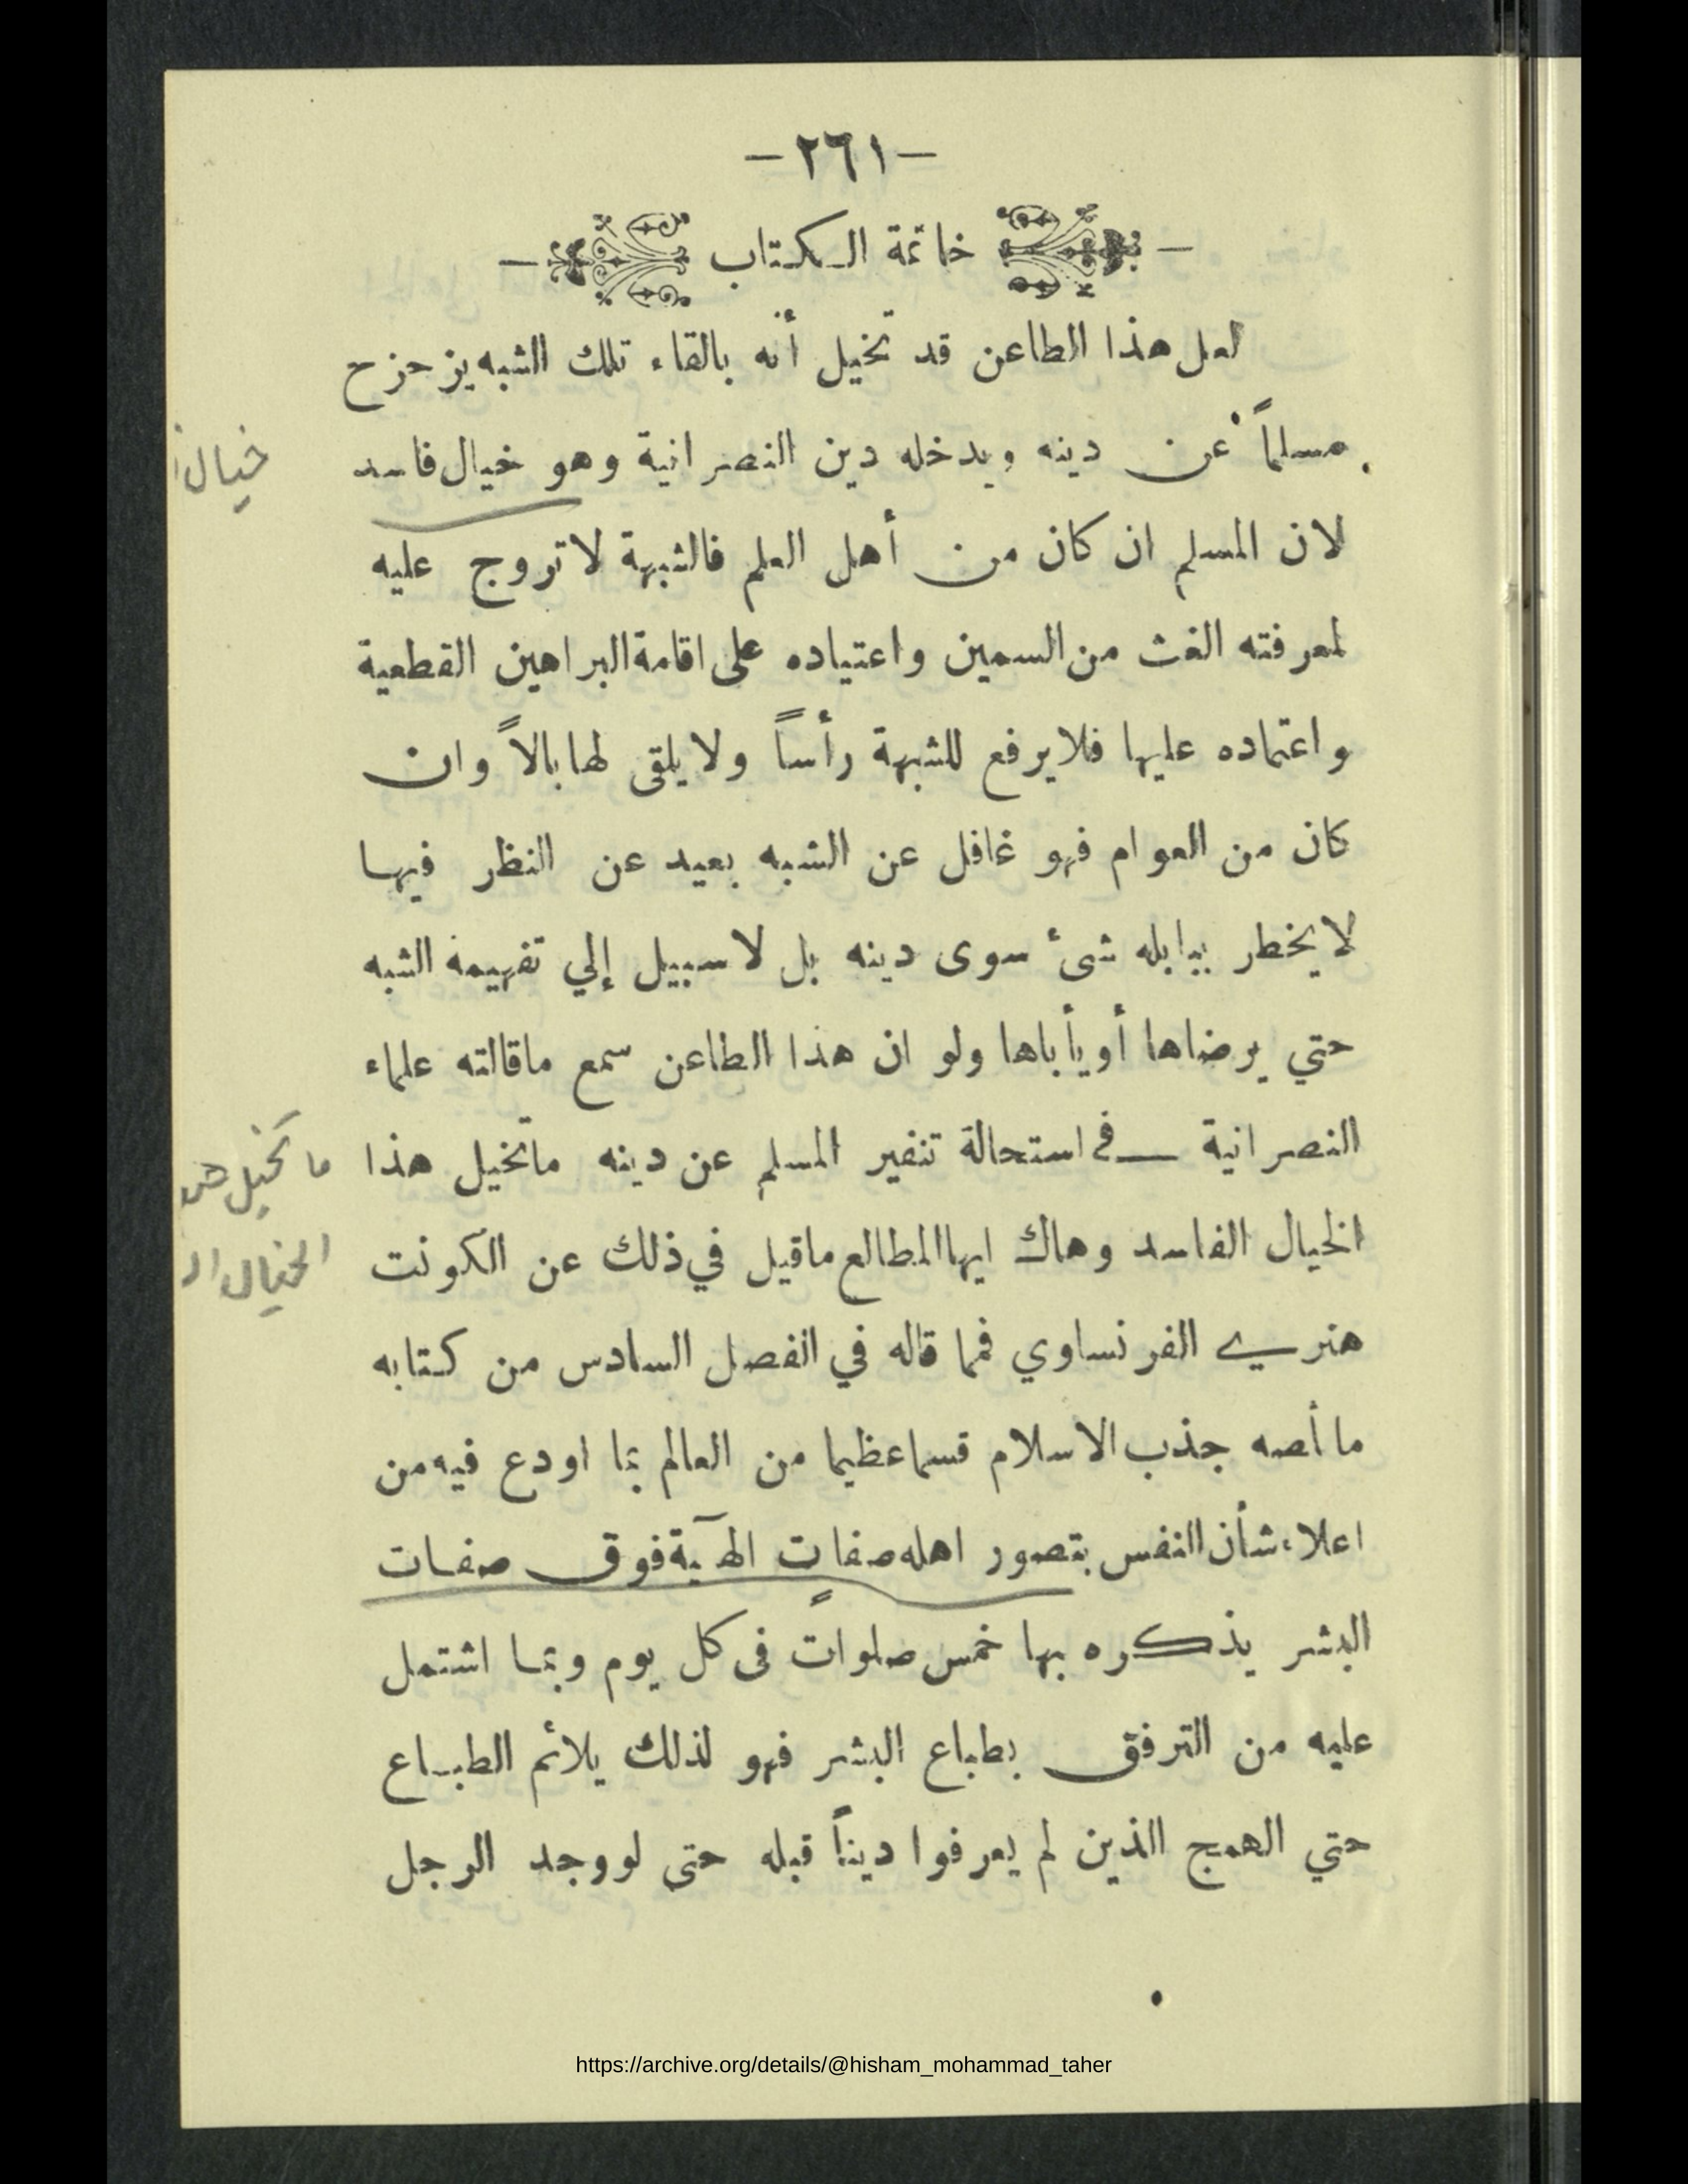 -٢٦١-
خاتمة الكتاب
لعل هذا الطاعن قد تخيل أنه بالقاء تلك الشبه يزحزح
مسلماً عن دينه ويدخله دين النصرانية وهو خيال فاسد
خيال
لان المسلم ان كان من أهل العلم فالشبهة لاتروج عليه
لمعرفته الغث من السمين واعتياده على اقامة البراهين القطعية
واعتماده عليها فلايرفع للشبهة رأساً ولايلقى لها بالاً وان
كان من العوام فهو غافل عن الشبه بعيد عن النظر فيها
لايخطر بباله شئ سوى دينه بل لاسبيل إلي تفهيمه الشبه
حتي يرضاها أويأباها ولو ان هذا الطاعن سمع ماقالته علماء
النصرانية في استحالة تنفير المسلم عن دينه ماتخيل هذا
ما تخيل هذ
الخيال الفاسد وهاك ايها المطالع ماقيل في ذلك عن الكونت
الخيال ال
هنري الفرنساوي فمما قاله في الفصل السادس من كتابه
ما أصه جذب الاسلام قسما عظيما من العالم بما اودع فيه من
اعلاء شأن النفس بتصور اهله صفات الهآية فوق صفات
البشر يذكره بها خمس صلواتٍ فى كل يوم وبما اشتمل
عليه من الترفق بطباع البشر فهو لذلك يلائم الطباع
حتي الهمج الذين لم يعرفوا ديناً قبله حتى لووجد الرجل
https://archive.org/details/@hisham_mohammad_taher